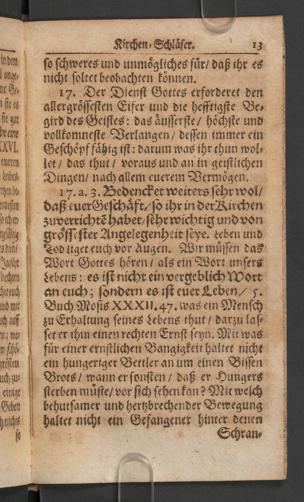 Kirchen-Schläfer. 13
so schweres und unmögliches für/ daß ihr es
nicht soltet beobachten können.
17. Der Dienst Gottes erforderet den
allergrössesten Eifer und die hefftigste Be-
gird des Geistes: das äusserste/ höchste und
vollkomneste Verlangen/ dessen immer ein
Geschöpf fähig ist: darum was ihr thun wol-
let/ das thut/ voraus und an in geistlichen
Dingen/ nach allem euerem Vermögen.
17. a. 3. Bedencket weiters sehr wol/
daß euer Geschäft/ so ihr in der Kirchen
zuverrichtē habet/ sehr wichtig und von
grössester Angelegenheit seye. Leben und
Tod liget euch vor Augen. Wir müssen das
Wort Gottes hören/ als ein Wort unsers
Lebens: es ist nicht ein vergeblich Wort
an euch; sondern es ist euer Leben/ 5.
Buch Mosis XXXII. 47. was ein Mensch
zu Erhaltung seines Lebens thut/ darzu las-
set er ihm einen rechten Ernst seyn. Mit was
für einer ernstlichen Bangigkeit haltet nicht
ein hungeriger Bettler an um einen Bissen
Brots/ wann er sonsten/ daß er Hungers
sterben müste/ vor sich sehen kan? Mit welch
behutsamer und hertzbrechender Bewegung
haltet nicht ein Gefangener hinter denen
Schran-